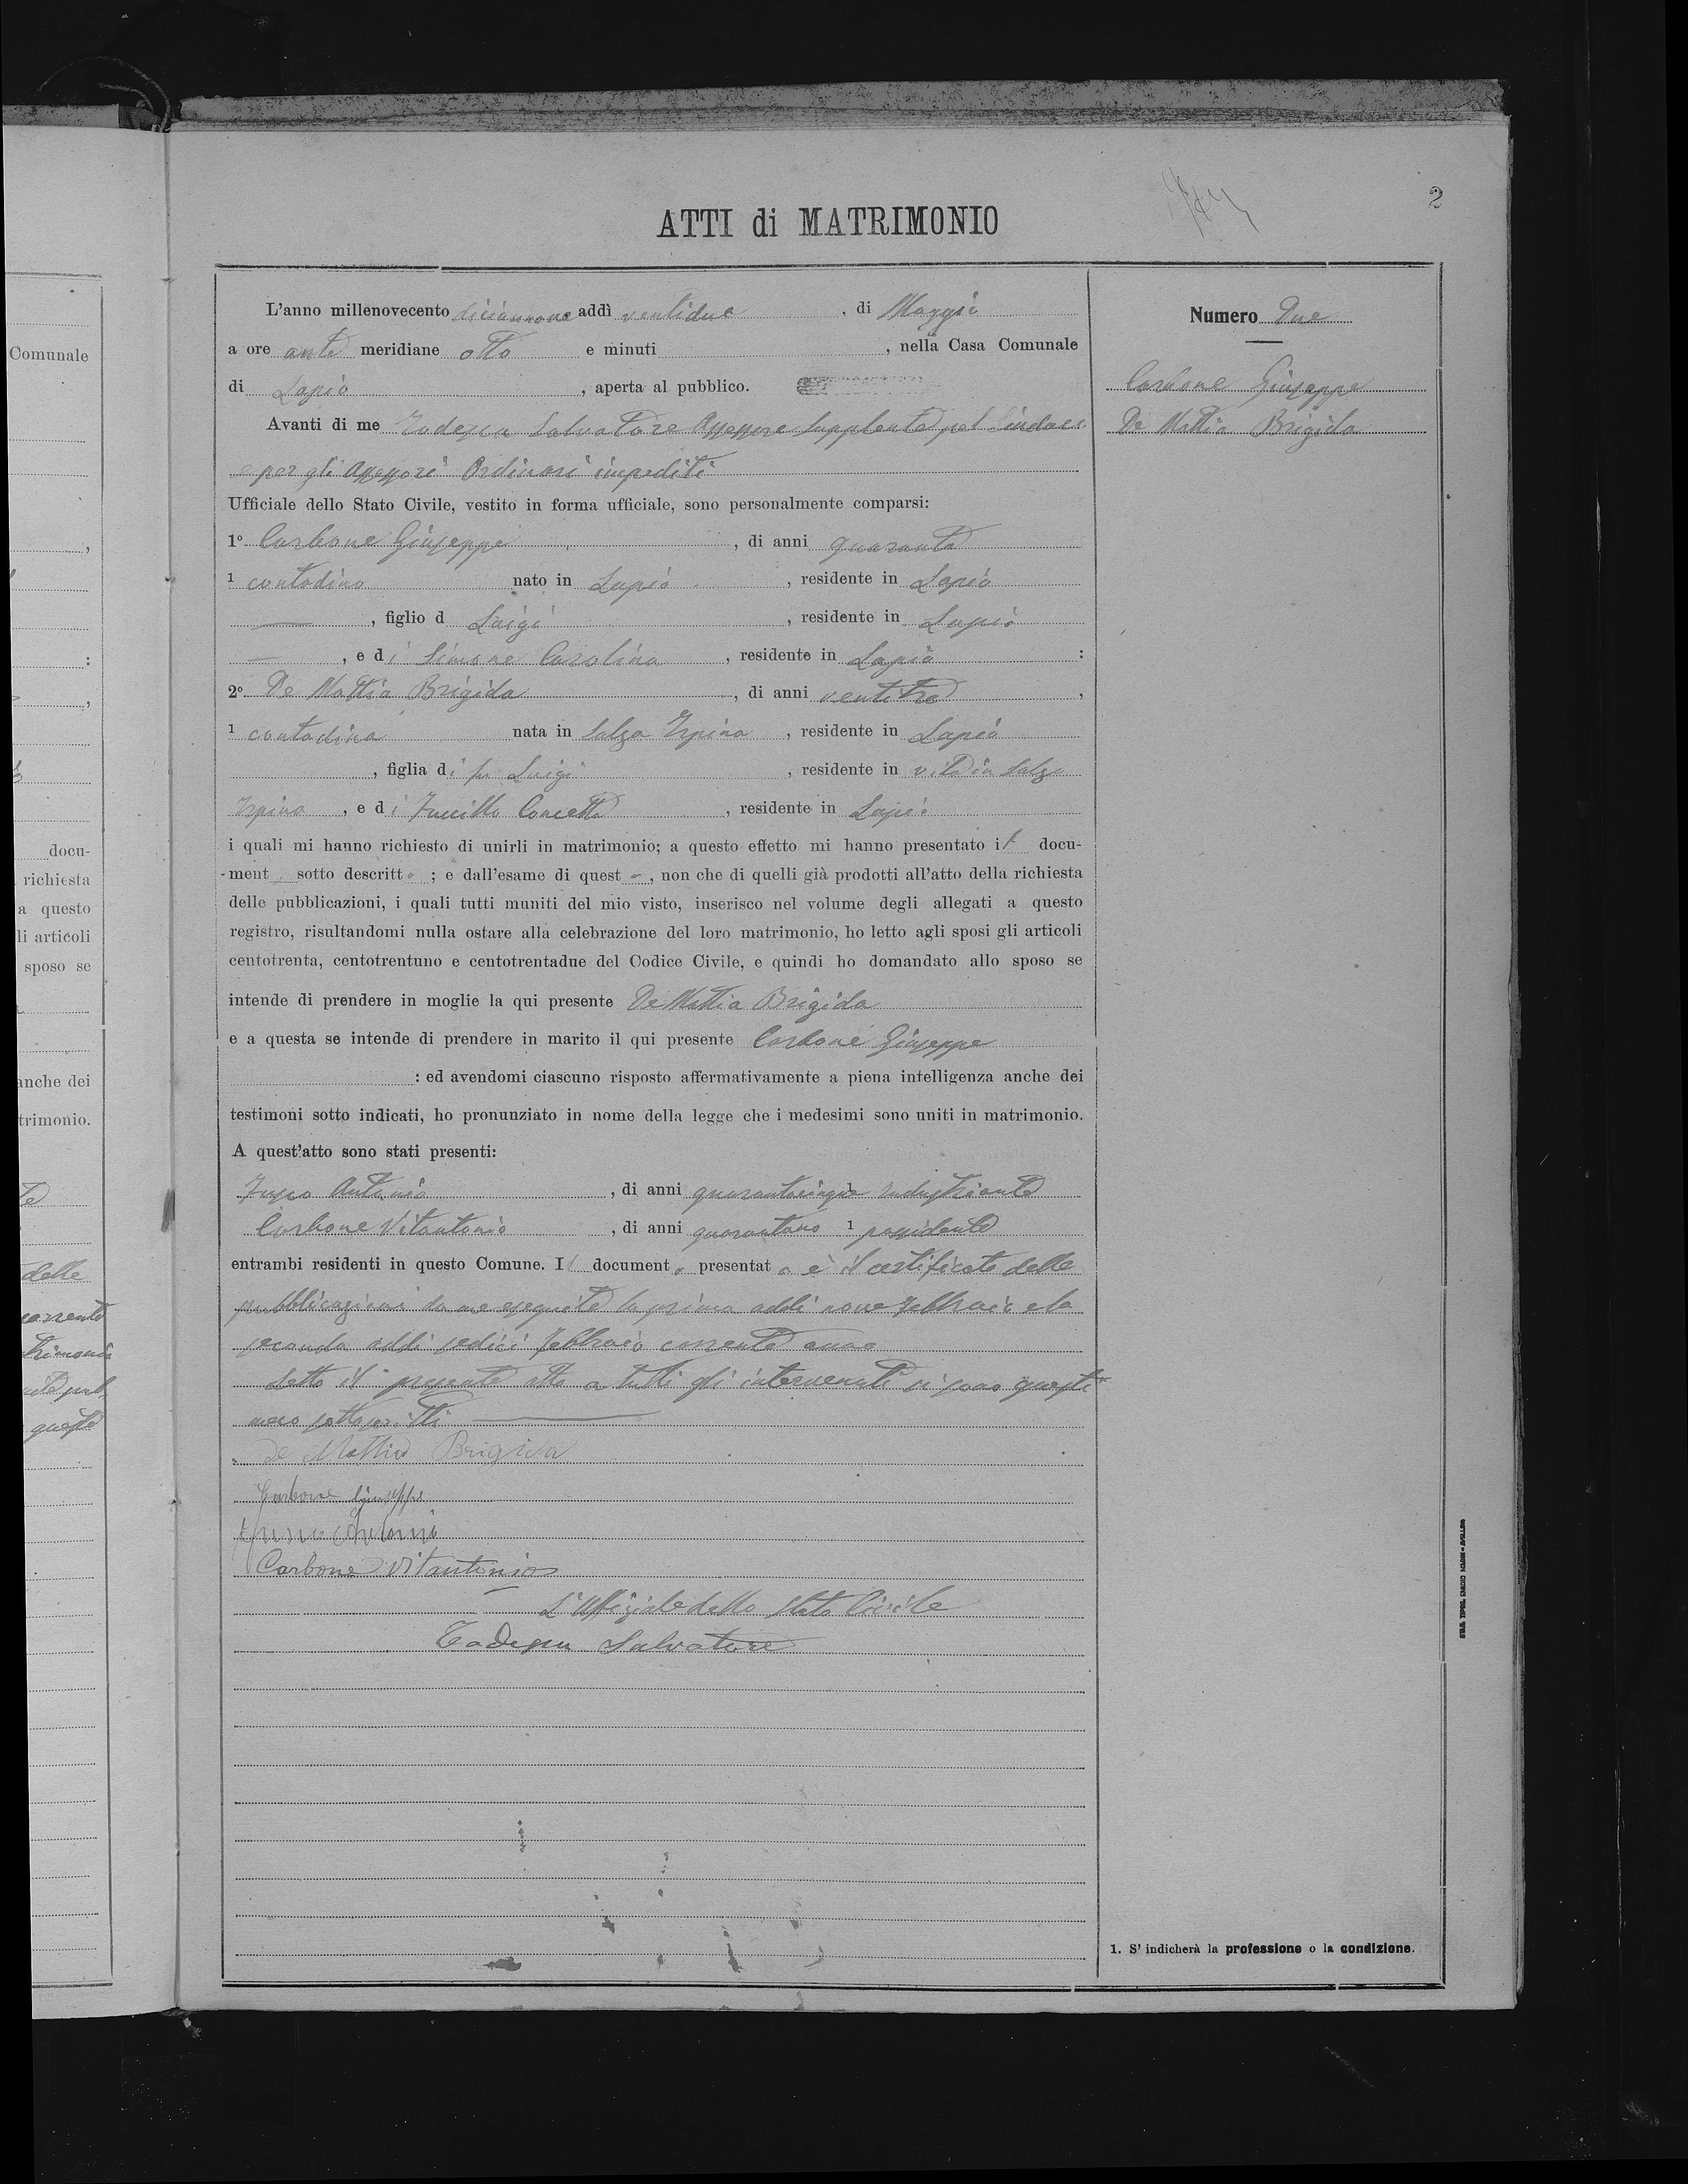 2
ATTI di MATRIMONIO
L'anno millenovecento diciannove addì ventidue, di Maggio
a ore anti meridiane otto e minuti, nella Casa Comunale
di Lapio, aperta al pubblico.
Avanti di me Todesca Salvatore Assessore Supplente pel Sindaco
e per gli Assessori Ordinari impediti
Ufficiale dello Stato Civile, vestito in forma ufficiale, sono personalmente comparsi:
1º Carbone Giuseppe, di anni quaranta
1 contadino nato in Lapio, residente in Lapio
, figlio d Luigi, residente in Lapio
, e di Simone Carolina, residente in Lapio :
2º De Mattia Brigida, di anni ventitre,
1 contadina nata in Salza Irpina, residente in Lapio
, figlia di fu Luigi, residente in vita in Salza
Irpina, e di Concetta, residente in Lapio
i quali mi hanno richiesto di unirli in matrimonio; a questo effetto mi hanno presentato il docu-
-ment sotto descritto ; e dall'esame di quest , non che di quelli già prodotti all'atto della richiesta
delle pubblicazioni, i quali tutti muniti del mio visto, inserisco nel volume degli allegati a questo
registro, risultandomi nulla ostare alla celebrazione del loro matrimonio, ho letto agli sposi gli articoli
centotrenta, centotrentuno e centotrentadue del Codice Civile, e quindi ho domandato allo sposo se
intende di prendere in moglie la qui presente De Mattia Brigida
e a questa se intende di prendere in marito il qui presente Carbone Giuseppe
: ed avendomi ciascuno risposto affermativamente a piena intelligenza anche dei
testimoni sotto indicati, ho pronunziato in nome della legge che i medesimi sono uniti in matrimonio.
A quest'atto sono stati presenti:
Antonio, di anni quarantacinque 1 industriante
Carbone Vitantonio, di anni quarantuno 1 possidente
entrambi residenti in questo Comune. Il documento presentato è il certificato delle
pubblicazioni da me eseguite la prima addì nove Febbraio e la
seconda addì sedici Febbraio corrente anno
Letto il presente atto a tutti gli intervenuti si sono questi
meco sottoscritti
De Mattia Brigida
Carbone Giuseppe
Antonio
Carbone Vitantonio
L'Uffiziale dello Stato Civile
Todesca Salvatore
Numero Due
Carbone Giuseppe
De Mattia Brigida
1. S' indicherà la professione o la condizione.
Comunale
docu-
richiesta
a questo
li articoli
sposo se
anche dei
trimonio.
delle
corrente
trimonio